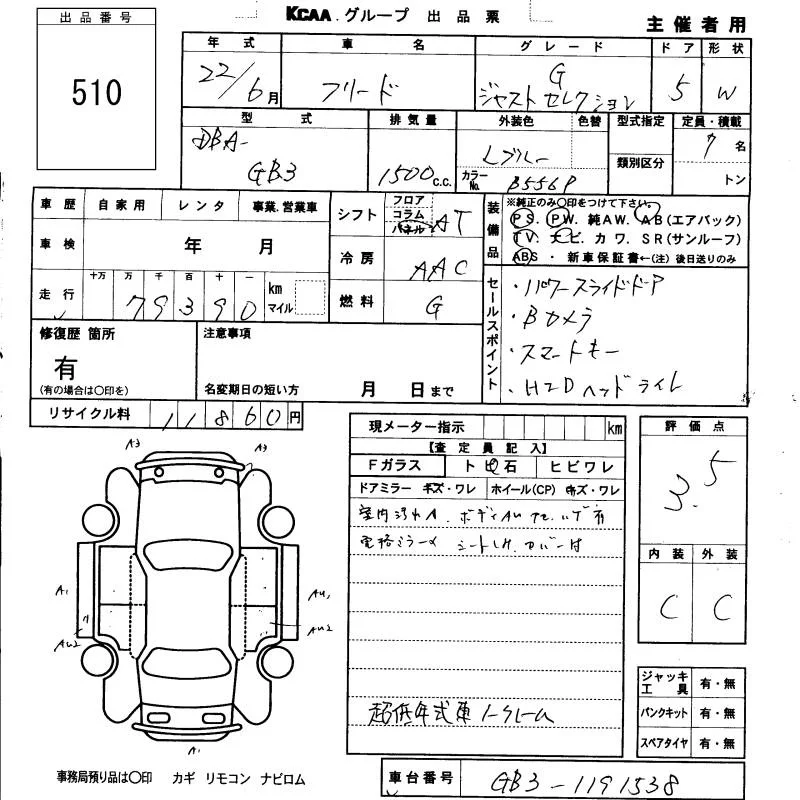 KCAA.グループ 出品票
主催者用
出品番号
510
年式 車名 グレード ドア 形状
22/6月 フリード G ジャストセレクション 5 W
型式 排気量 外装色 色替 型式指定 定員・積載
DBA-GB3 1500c.c. Lブルー カラーNo. B556P 類別区分 7名
トン
車歴 自家用 レンタ 事業.営業車
シフト フロア コラム パネル AT
車検 年 月
冷房 AAC
走行 十万 万 千 百 十 一 km マイル
79390
燃料 G
装備品 ※純正のみ○印をつけて下さい。
PS. PW. 純AW. AB(エアバック)
TV. ナビ. カワ. SR(サンルーフ)
ABS ・ 新車保証書←(注) 後日送りのみ
セールスポイント
・パワースライドドア
・Bカメラ
・スマートキー
・HIDヘッドライト
修復歴 箇所
有
(有の場合は○印を)
注意事項
名変期日の短い方 月 日まで
リサイクル料 11860円
現メーター指示 km
【査定員記入】
Fガラス トビ石 ヒビワレ
ドアミラー キズ・ワレ ホイール(CP) キズ・ワレ
室内汚れA. ボディAU
電格ミラー
超低年式車 ノークレーム
評価点
3.5
内装 外装
C C
A3 A3
A1 AU1
AU2 AU2
A1
ジャッキ工具 有・無
パンクキット 有・無
スペアタイヤ 有・無
事務局預り品は○印 カギ リモコン ナビロム
車台番号 GB3-1191538